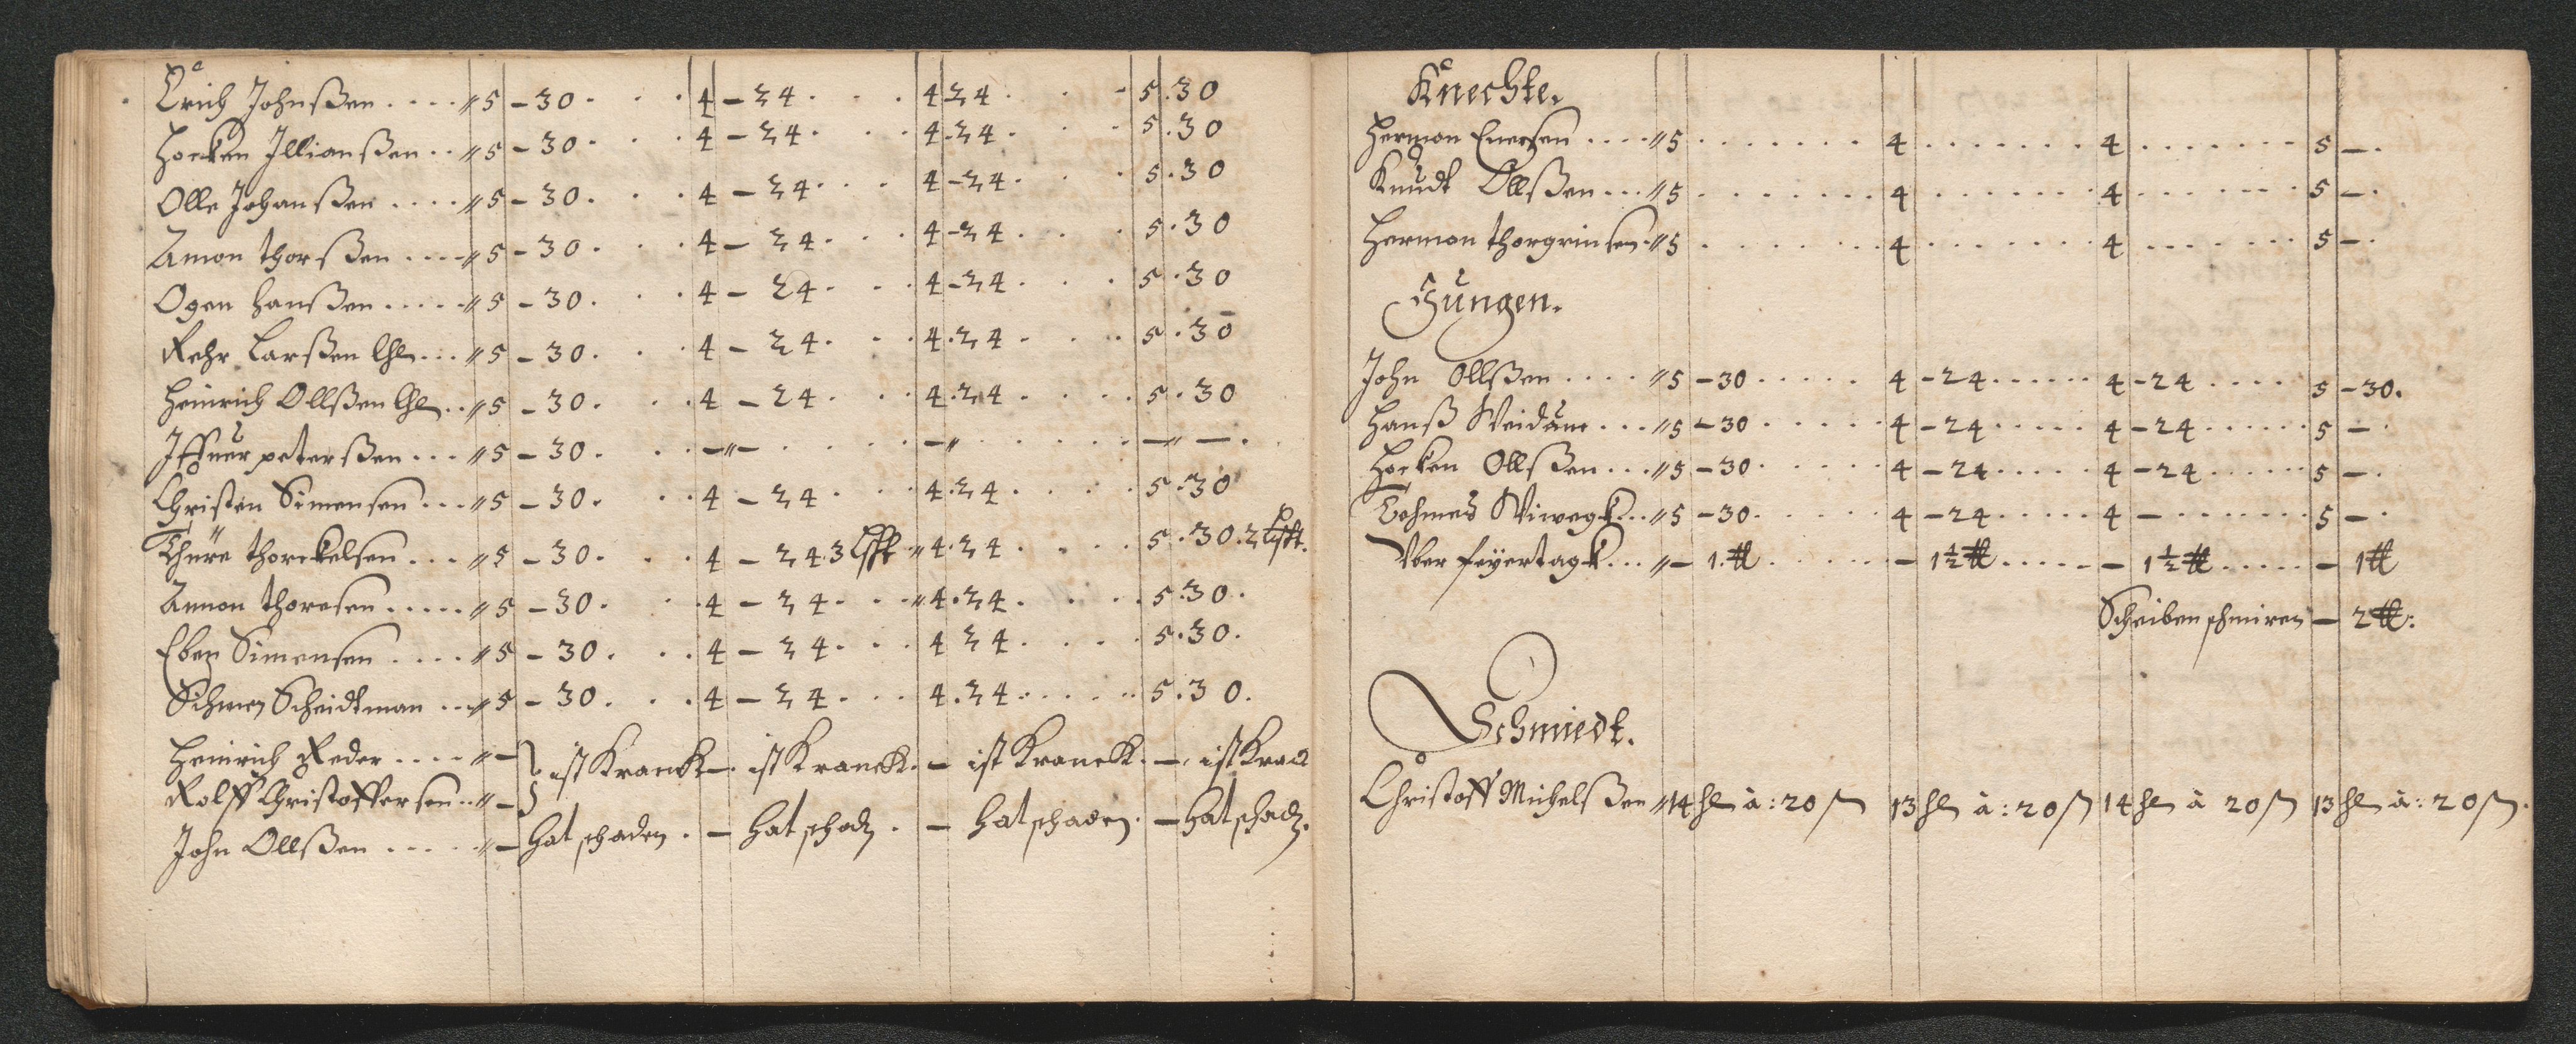 Erich Johnßen .... " 5 - 30 . . . 4 - 24 . . . 4 24 . . - 5 . 30
Hocken Illianßen .. " 5 - 30 . . . 4 - 24 . . . 4 . 24 . . . 5 . 30
Olle Johanßen .... " 5 - 30 . . . 4 - 24 . . . 4 - 24 . . . 5 . 30
Amon thorßen .... " 5 - 30 . . . 4 - 24 . . . 4 - 24 . . . 5 . 30
Ogen Hanßen ..... " 5 - 30 . . . 4 - 24 . . . 4 - 24 . . . 5 . 30
Rehr Larßen ... " 5 - 30 . . . 4 - 24 . . . 4 . 24 . . . 5 . 30
Heinrich Ollßen .. " 5 - 30 . . . 4 - 24 . . . 4 . 24 . . . 5 . 30
Iffuer peterßen ... " 5 - 30 . . . - " - . . . - " . . . - " - .
Christen Simensen ... " 5 - 30 . . . 4 - 24 . . . 4 . 24 . . . 5 . 30
Thüre thorckelsen ... " 5 - 30 . . . 4 - 24 . 3 " 4 . 24 . . . 5 . 30 . 2
Amon thoresen ..... " 5 - 30 . . . 4 - 24 . . " 4 . 24 . . . 5 . 30 .
Eben Simensen .... " 5 - 30 . . . 4 - 24 . . . 4 24 . . . 5 . 30 .
Sihmen Scheidtman .. " 5 - 30 . . . 4 - 24 . . . 4 . 24 . . . 5 . 30 .
Heinrich Reder .... " - } ist Kranck - ist Kranck . - ist Kranck . - ist Kranck
Rolff Christoffersen .. " - }
John Ollßen ..... " - hat schaden . - hat schaden . - hat schaden . - hat schaden .
Knechte.
Hermon Enersen .... " 5 . . . . . . . 4 . . . . . . . 4 . . . . . . . 5 - .
Knudt Ollßen ... " 5 . . . . . . . 4 . . . . . . . 4 . . . . . . . 5 - .
Hermon thorgrinsen . " 5 . . . . . . . 4 . . . . . . . 4 . . . . . . . 5 - .
Jungen.
John Ollßen .... " 5 - 30 ..... 4 - 24 ...... 4 - 24 .... 5 - 30 .
Hanß Weidãm ... " 5 - 30 ..... 4 - 24 ..... 4 - 24 ...... 5 - .
Hocken Ollßen ... " 5 - 30 ..... 4 - 24 ..... 4 - 24 ...... 5 - .
Tohmes Wiwegk .. " 5 - 30 ..... 4 - 24 ..... 4 - ....... 5 - .
Vber feÿertagk ... " - 1 . ℔ ..... - 1½ ℔ ..... - 1½ ℔ ..... - 1 ℔
Scheiben schmiren - 2 ℔ :
Schmiedt.
Christoff Michelßen " 14 sch à : 20 ß 13 sch à : 20 ß 14 sch à 20 ß 13 sch à : 20 ß .